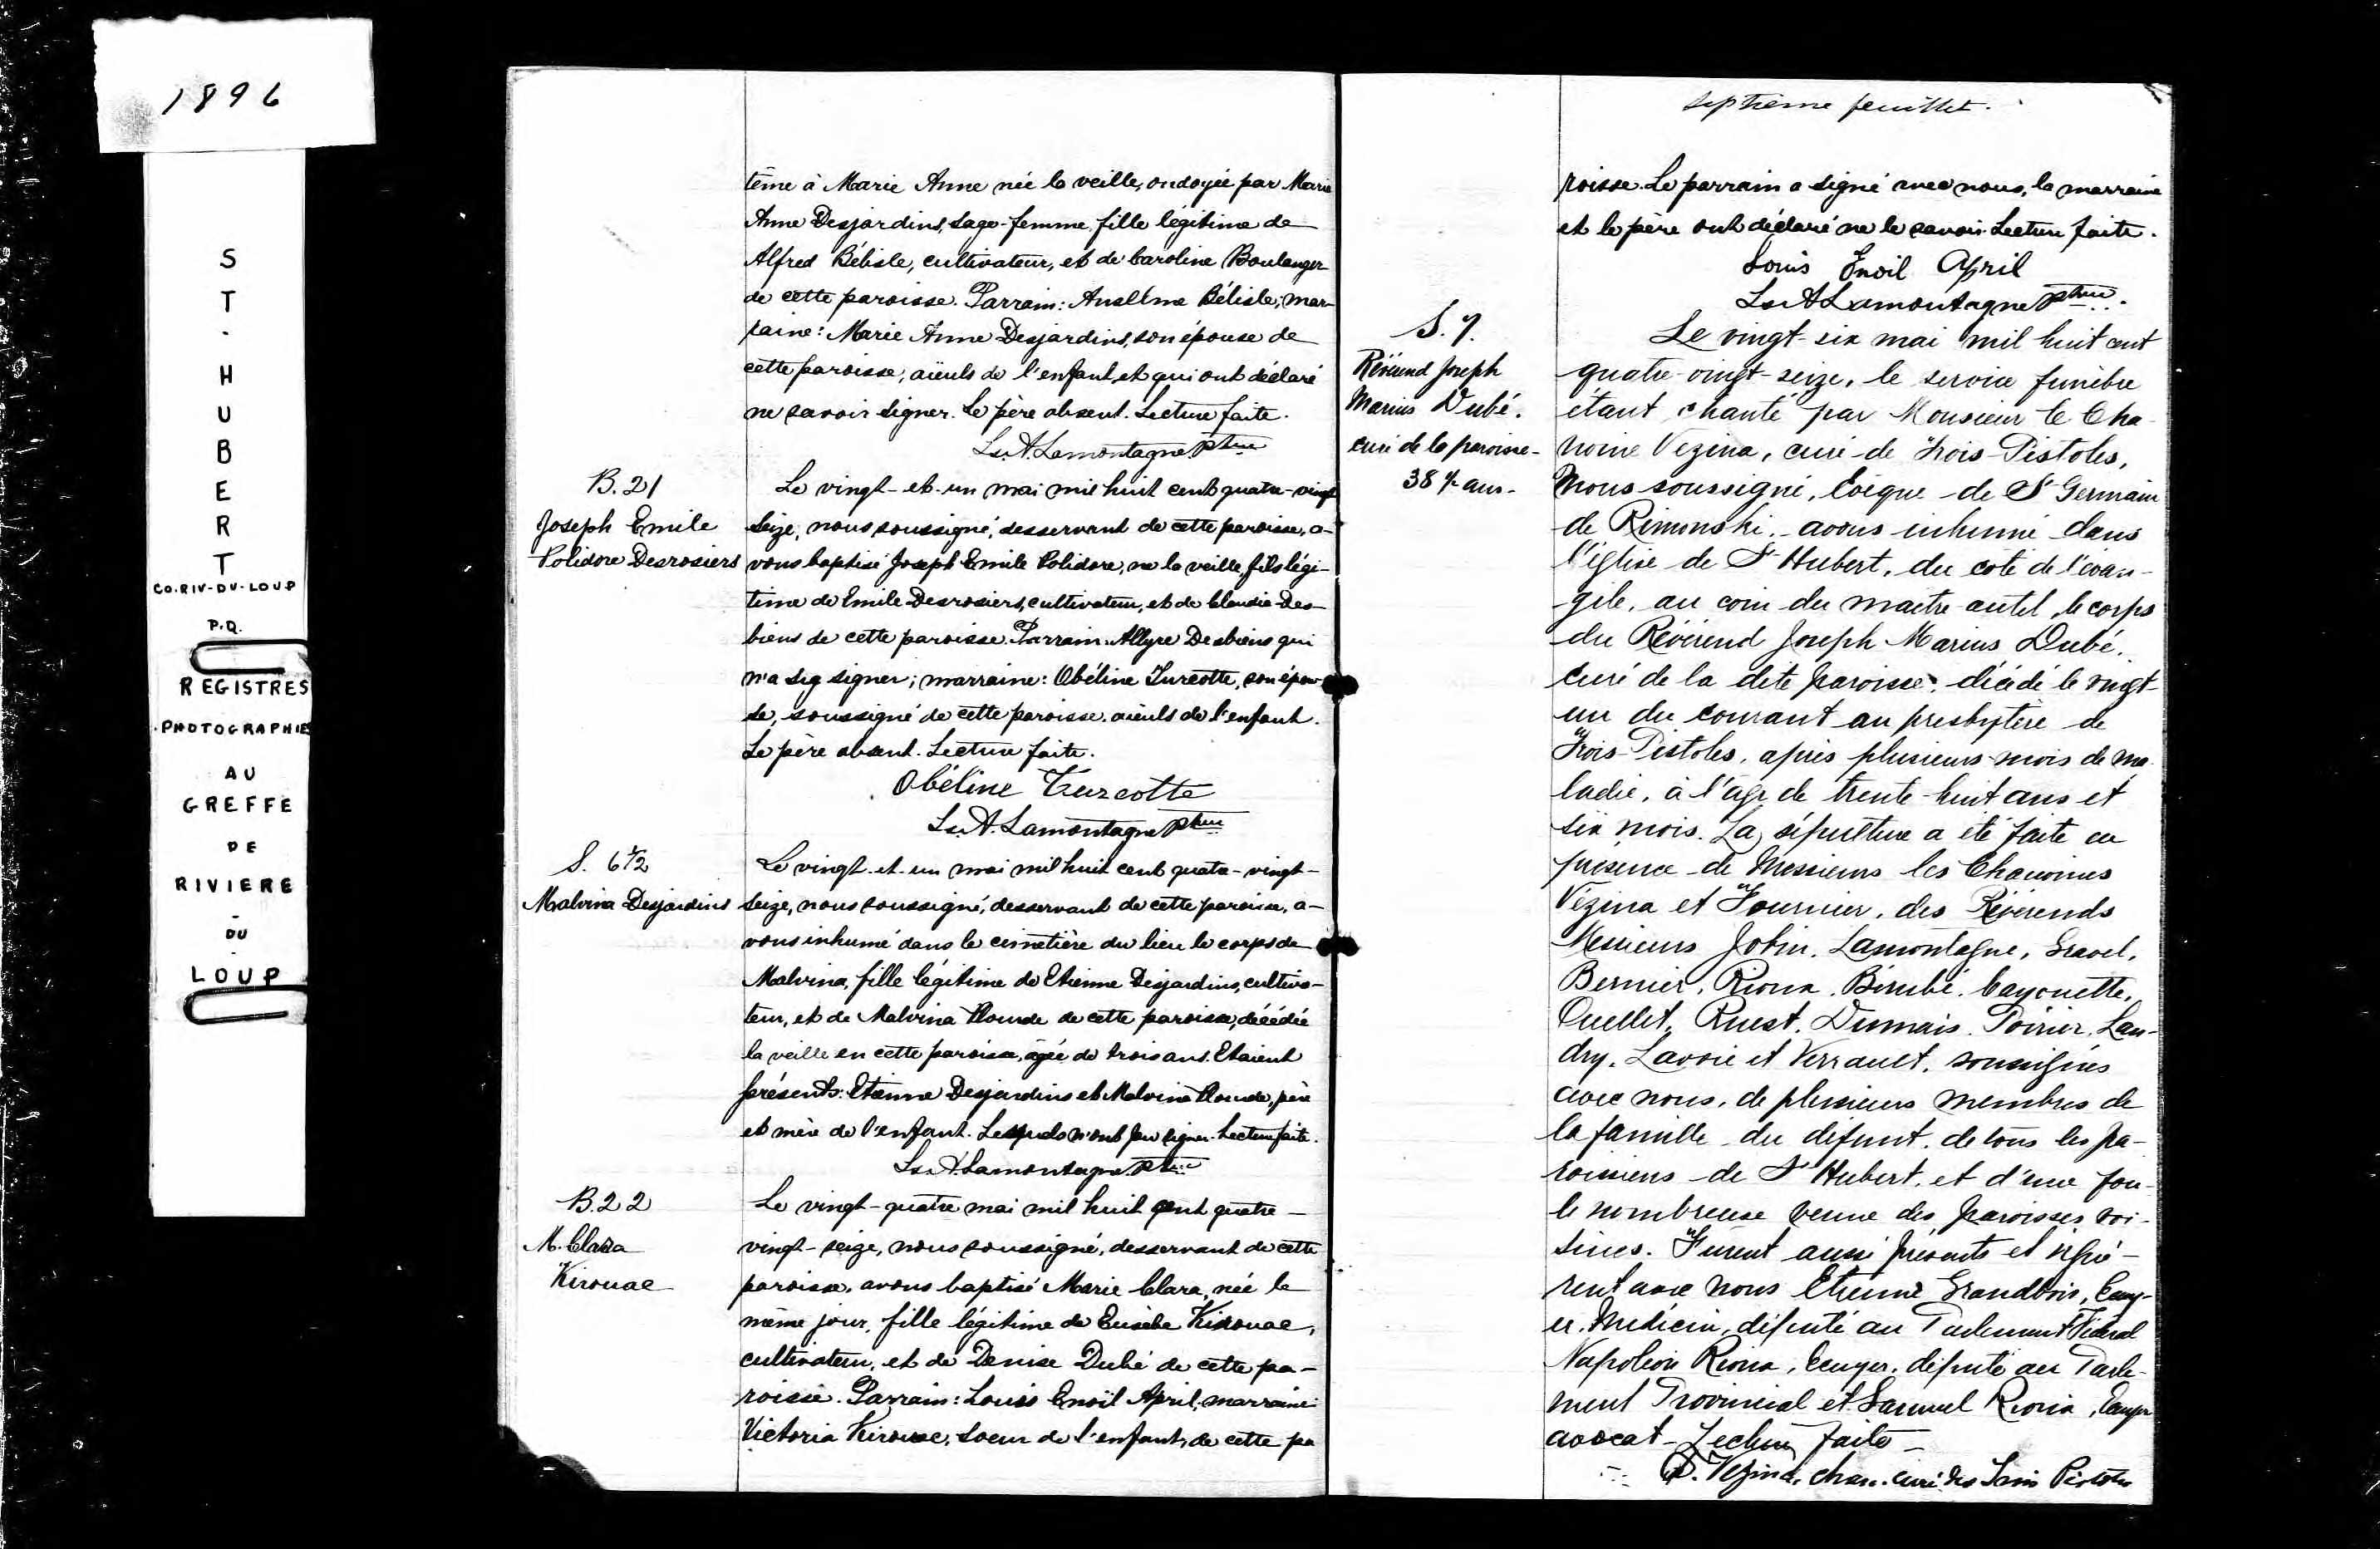 1896
ST-HUBERT
CO.RIV-DU-LOUP
P.Q.
REGISTRES
PHOTOGRAPHIE
AU
GREFFE
DE
RIVIERE
-
DU
-
LOUP
tême à Marie Anne née la veille, ondoyée par Marie
Anne Desjardins, sage-femme, fille légitime de
Alfred Bélisle, cultivateur, et de Caroline Boulanger
de cette paroisse. Parrain: Anselme Bélisle; mar-
raine: Marie Anne Desjardins, son épouse de
cette paroisse, aïeuls de l'enfant, et qui ont déclaré
ne savoir signer. Le père absent. Lecture faite.
Ls. A. Lamontagne Ptre
B. 21
Joseph Emile
Polidore Desrosiers
Le vingt-et-un mai mil huit cent quatre-vingt
seize, nous soussigné, desservant de cette paroisse, a-
vons baptisé Joseph Emile Polidore, né la veille, fils légi-
time de Emile Desrosiers, cultivateur, et de Claudia Des-
biens de cette paroisse. Parrain: Allyre Desbiens qui
n'a sig signer; marraine: Obéline Turcotte, son épou-
se, soussigné de cette paroisse. aïeuls de l'enfant.
Le père absent. Lecture faite.
Obéline Turcotte
Ls. A. Lamontagne Ptre
S. 6 1/2
Malvina Desjardins
Le vingt-et-un mai mil huit cent quatre-vingt-
seize, nous soussigné, desservant de cette paroisse, a-
vons inhumé dans le cimetière du lieu le corps de
Malvina, fille légitime de Etienne Desjardins, cultiva-
teur, et de Malvina Plourde de cette paroisse, décédée
la veille en cette paroisse, âgée de trois ans. Etaient
présents: Etienne Desjardins et Malvina Plourde, père
et mère de l'enfant. Lesquels n'ont pu signer. Lecture faite.
Ls. A. Lamontagne Ptre
B. 22
M. Clara
Kirouac
Le vingt-quatre mai mil huit cent quatre-
vingt-seize, nous soussigné, desservant de cette
paroisse, avons baptisé Marie Clara, née le
même jour, fille légitime de Eusèbe Kirouac,
cultivateur, et de Denise Dubé de cette pa-
roisse. Parrain: Louis Enoïl April, marraine
Victoria Kirouac, soeur de l'enfant, de cette pa
septième feuillet.
roisse. Le parrain a signé avec nous, la marraine
et le père ont déclaré ne le savoir. Lecture faite.
Louis Enoil April
Ls. A. Lamontagne Ptre.
S. 7.
Révérend Joseph
Marius Dubé.
curé de la paroisse-
38 ½ ans-
Le vingt-six mai mil huit cent
quatre-vingt-seize, le service funèbre
étant chanté par Monsieur le Cha-
noine Vezina, curé de Trois-Pistoles,
Nous soussigné, Evêque de St Germain
de Rimouski, avons inhumé dans
l'église de St Hubert, du coté de l'évan-
gile, au coin du maître autel, le corps
du Révérend Joseph Marius Dubé,
curé de la dite paroisse, décédé le vingt-
un du courant au presbytère de
Trois-Pistoles, après plusieurs mois de ma-
ladie, à l'age de trente-huit ans et
six mois. La sépulture a été faite en
présence de Messieurs les Chanoines
Vézina et Fournier, des Révérends
Messieurs Jobin, Lamontagne, Gravel,
Bernier, Rioux, Bérubé, Cayouette,
Ouellet, Ruest, Dumais, Poirier, Lan-
dry, Lavoie et Verrault, soussignés
avec nous, de plusieurs membres de
la famille du défunt, de tous les pa-
roissiens de St Hubert, et d'une fou-
le nombreuse venue des paroisses voi-
sines. Furent aussi présents et signè-
rent avec nous Etienne Grandbois, Ecuy-
er, Médecin, député au Parlement Fédéral
Napoléon Rioux, Ecuyer, député au Parle-
ment Provincial et Samuel Rioux, Ecuyer
avocat- Lecture faite-
D. Vézina, chan. curé des Trois Pistoles